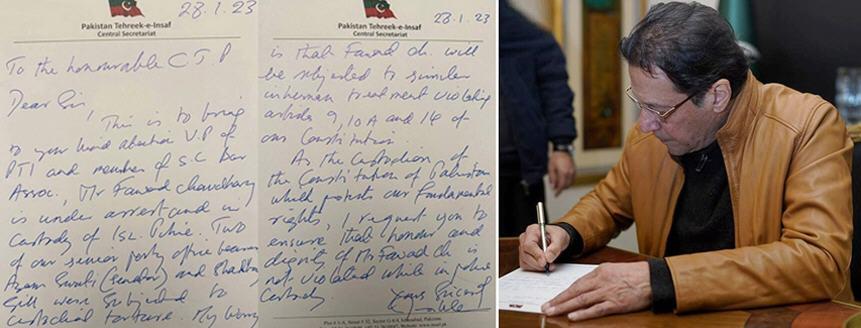 28.1.23
Pakistan Tehreek-e-Insaf
Central Secretariat
To the honourable C J P
Dear Sir,
This is to bring
to your kind attention V.P of
PTI and member of S.C bar
Assoc., Mr Fawad Chaudhary
is under arrest and in
custody of Isl. Police. Two
of our senior party office bearers
Azam Swati (senator) and Shahbaz
Gill were subjected to
custodial torture. My worry
28.1.23
Pakistan Tehreek-e-Insaf
Central Secretariat
is that Fawad ch. will
be subjected to similar
inhuman treatment violating
articles 9, 10A and 14 of
our Constitution.
As the custodian of
the Constitution of Pakistan
which protects our fundamental
rights, I request you to
ensure that honour and
dignity of Mr Fawad ch. is
not violated while in police
custody.
Yours Sincerely